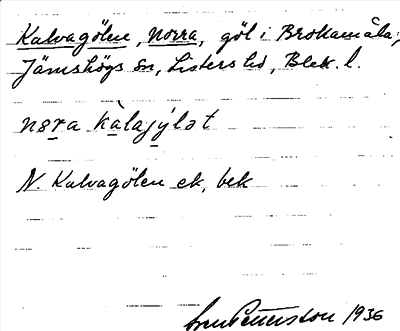 Kalvagölen, Norra, göl i Brokamåla,
Jämshögs sn, Listers hd, Blek. l.
nɷra kàlajỳlət
N. Kalvagölen ek, bek
Sven Pettersson 1936